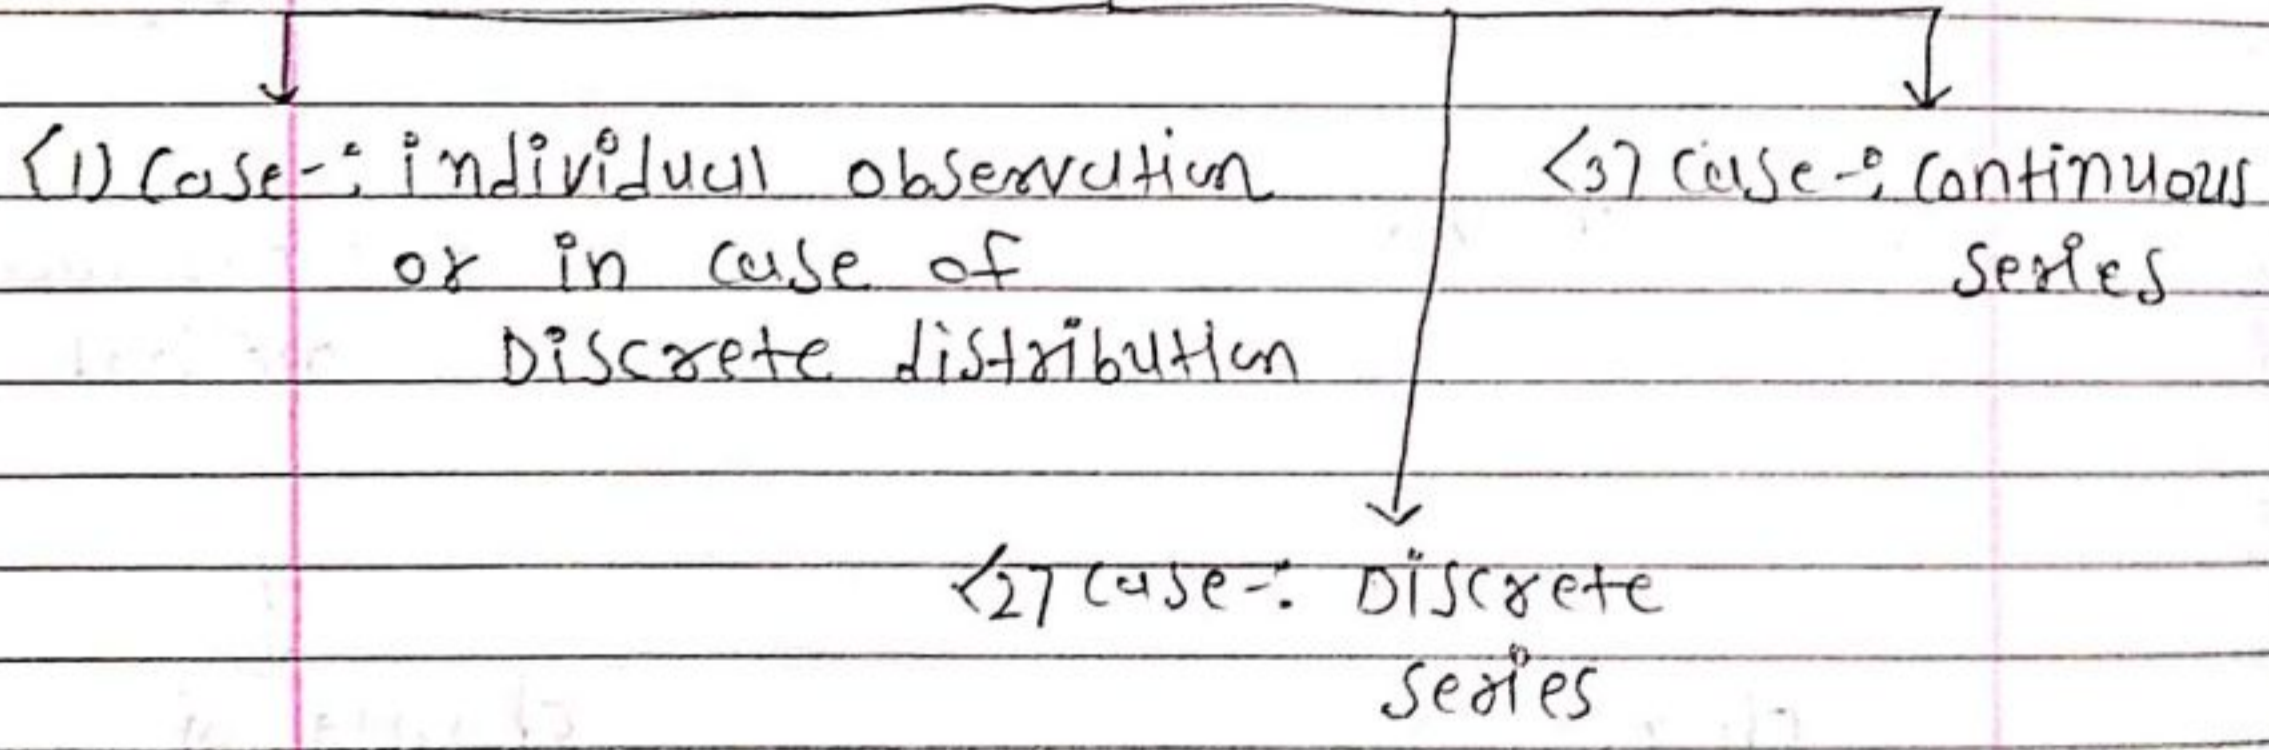 <1) Case-: individual observation
or in case of
Discrete distribution
<3> Case-: Continuous
series
<2> Case-: Discrete
series